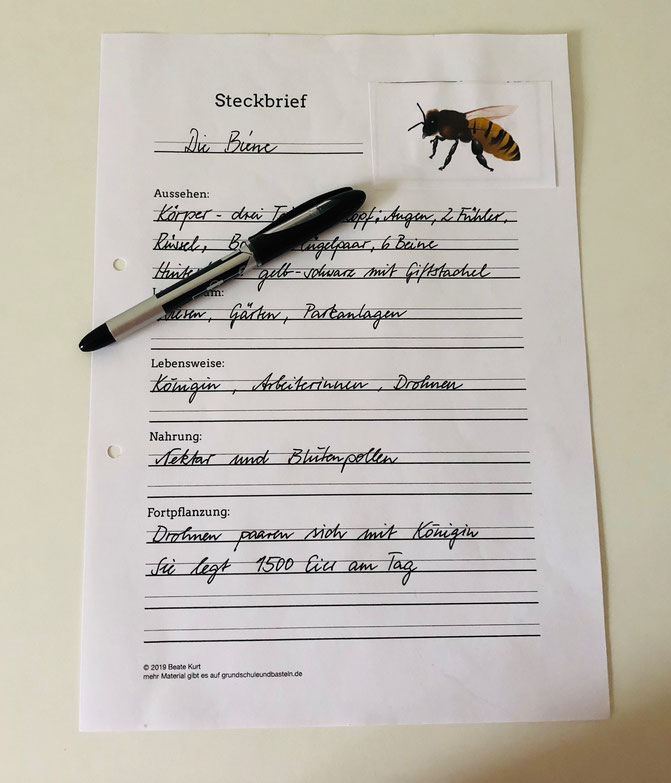 Steckbrief
Die Biene
Aussehen:
Körper - drei Kopf: Augen, 2 Fühler,
Rüssel, 6 Beine
gelb-schwarz mit Giftstachel
Gärten, Parkanlagen
Lebensweise:
Königin, Arbeiterinnen, Drohnen
Nahrung:
Nektar und Blütenpollen
Fortpflanzung:
Drohnen paaren sich mit Königin
Sie legt 1500 Eier am Tag
© 2019 Beate Kurt
mehr Material gibt es auf grundschuleundbasteln.de